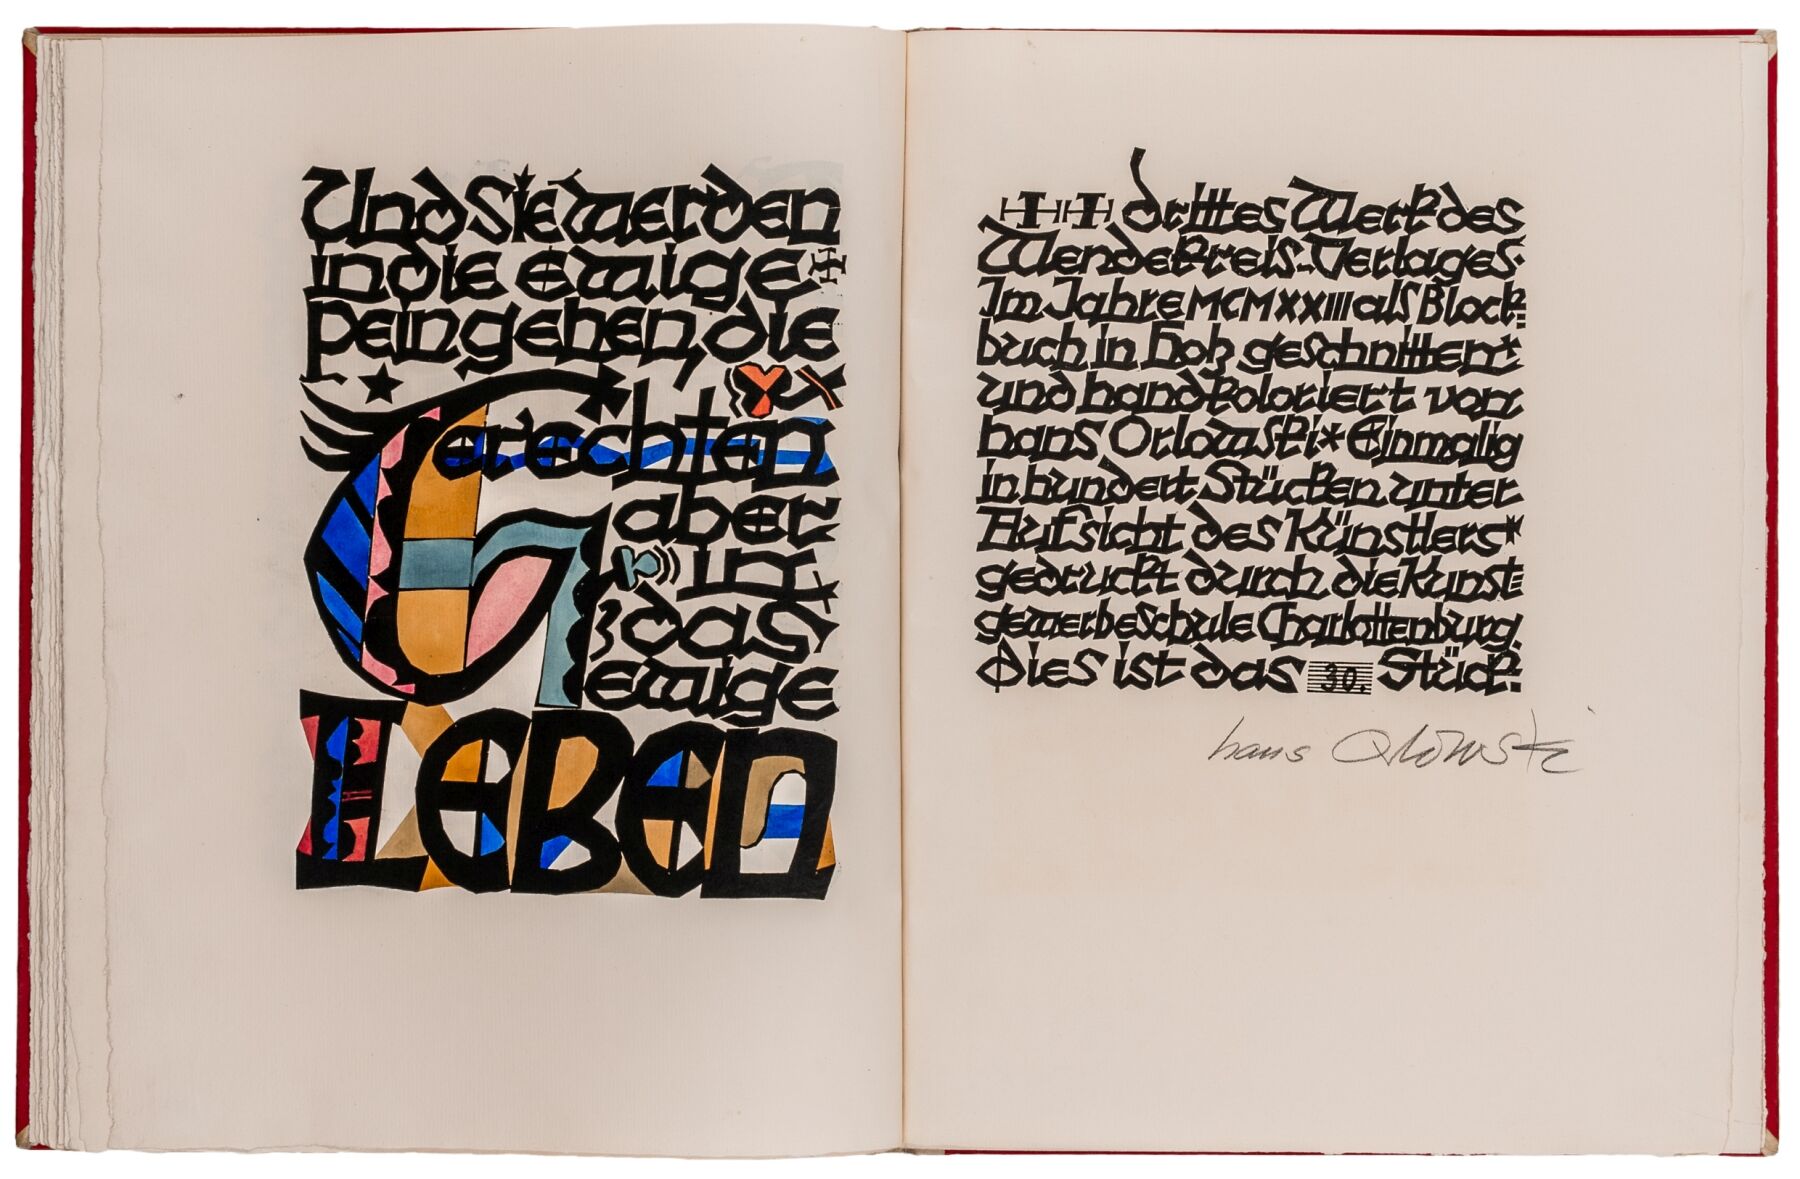 Und Sie werden
in die ewige
Pein gehen, die
Gerechten
aber
in
das
ewige
LEBEN
drittes Werk des
Wendekreis-Verlages.
Im Jahre MCMXXIII als Block=
buch in holz geschnitten
und handkoloriert von
hans Orlowski * Einmalig
in hundert Stücken unter
Aufsicht des Künstlers *
gedruckt durch die Kunst=
gewerbeschule Charlottenburg.
Dies ist das 30. Stück.
hans Orlowski